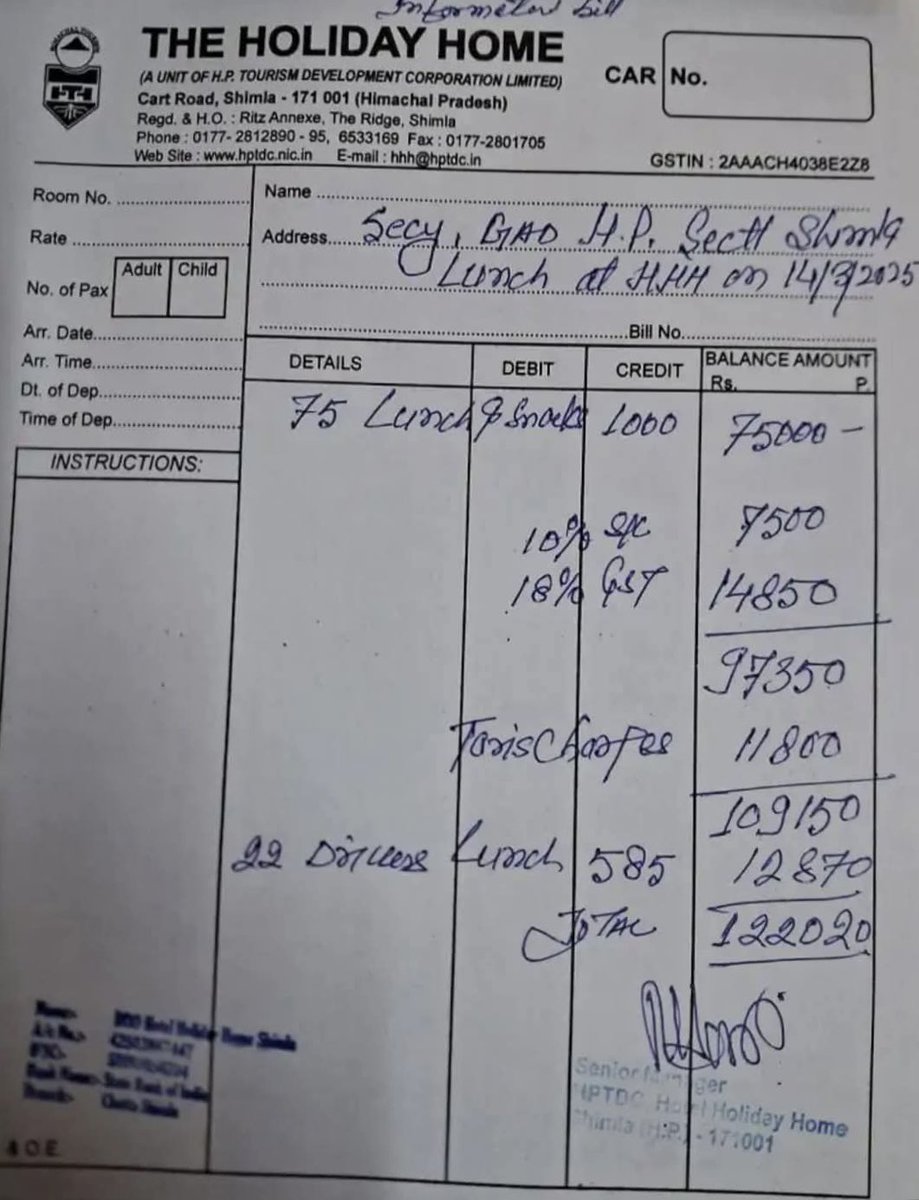 Information bill
THE HOLIDAY HOME
(A UNIT OF H.P. TOURISM DEVELOPMENT CORPORATION LIMITED)
Cart Road, Shimla - 171 001 (Himachal Pradesh)
Regd. & H.O. : Ritz Annexe, The Ridge, Shimla
Phone : 0177- 2812890 - 95, 6533169 Fax : 0177-2801705
Web Site : www.hptdc.nic.in E-mail : hhh@hptdc.in
CAR No.
GSTIN : 2AAACH4038E2Z8
HIMACHAL TOURISM
HTH
Room No.
Rate
Adult Child
No. of Pax
Arr. Date
Arr. Time
Dt. of Dep.
Time of Dep.
INSTRUCTIONS:
Name
Address Secy, GAD H.P. Sectt Shimla
Lunch at HHH on 14/3/2025
Bill No.
DETAILS DEBIT CREDIT BALANCE AMOUNT
Rs. P.
75 Lunch & Snacks 1000 75000 -
10% S/C 7500
18% GST 14850
97350
Charges 11800
109150
22 Drivers Lunch 585 12870
TOTAL 122020
Name:- Hotel Holiday Home Shimla
A/c No.:-
Bank Name:- State Bank of India
Branch:- Shimla
Senior Manager
HPTDC, Hotel Holiday Home
Shimla (H.P.) - 171001
& O.E.